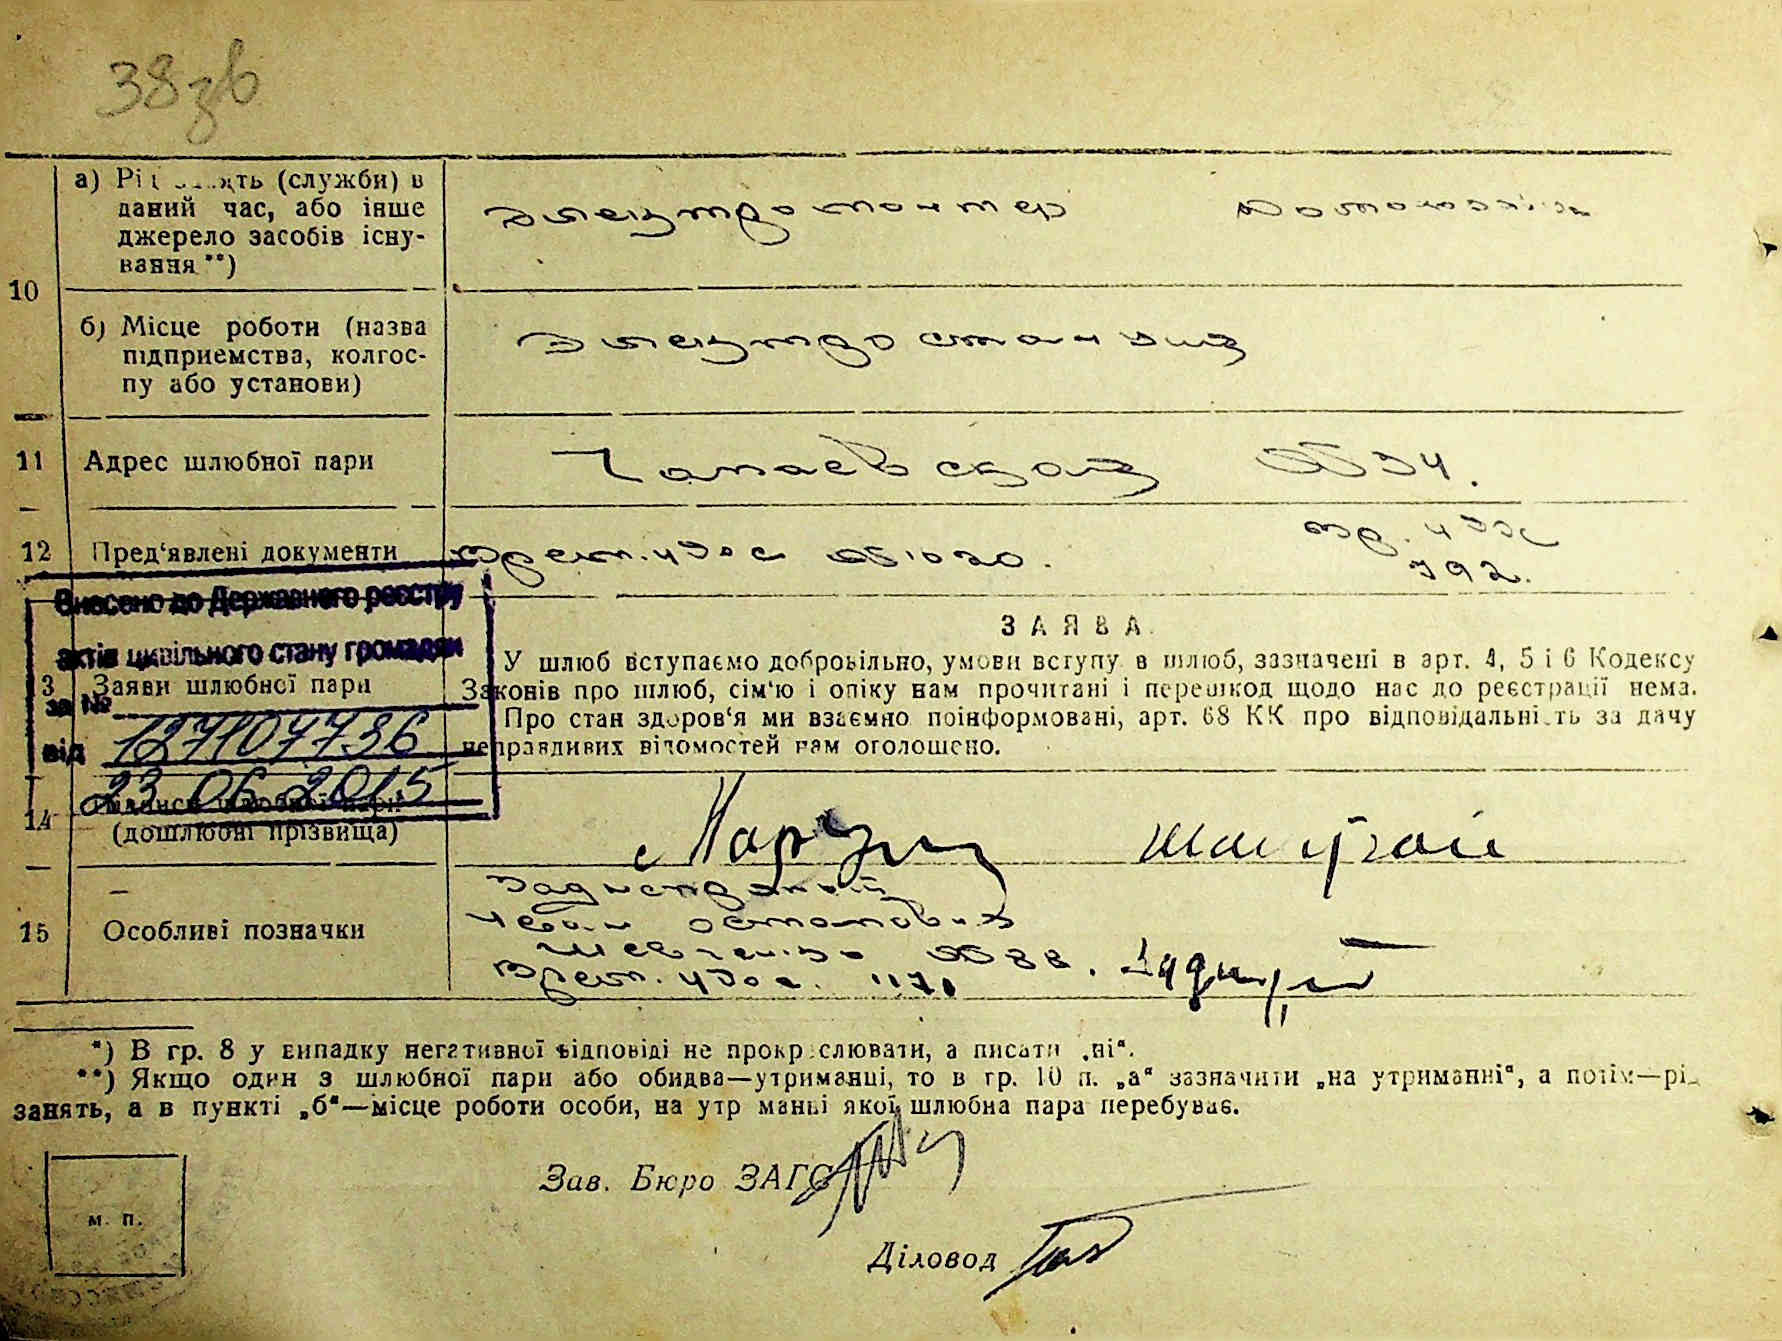 38зв
а) Рід занять (служби) в
даний час, або інше
джерело засобів існу-
вання **)
Электромонтер Домохоз.
10
б) Місце роботи (назва
підприемства, колгос-
пу або установи)
Электростанция
11 Адрес шлюбної пари
Чапаевская № 34.
12 Пред'явлені документи
Врем. удос № 1020. вр. удос
792.
Внесено до Державного реєстру
актів цивільного стану громадян
за №
127107736
від
23.06.2015
ЗАЯВА.
3 Заяви шлюбної пари
У шлюб вступаємо добровільно, умови вступу в шлюб, зазначені в арт. 4, 5 і 6 Кодексу
Законів про шлюб, сім'ю і опіку нам прочитані і перешкод щодо нас до реєстрації нема.
Про стан здоров'я ми взаємно поінформовані, арт. 68 КК про відповідальність за дачу
неправдивих відомостей нам оголошено.
14 Підписи шлюбної пари
(дошлюбні прізвища)
15 Особливі позначки
Иван Остапович
Шевченко № 88.
Врем. удос. 1171
*) В гр. 8 у випадку негативної відповіді не прокреслювати, а писати „ні".
**) Якщо один з шлюбної пари або обидва—утриманці, то в гр. 10 п. „а" зазначити „на утриманні", а потім—рід
занять, а в пункті „б"—місце роботи особи, на утриманні якої шлюбна пара перебуває.
Зав. Бюро ЗАГС
м. п.
Діловод